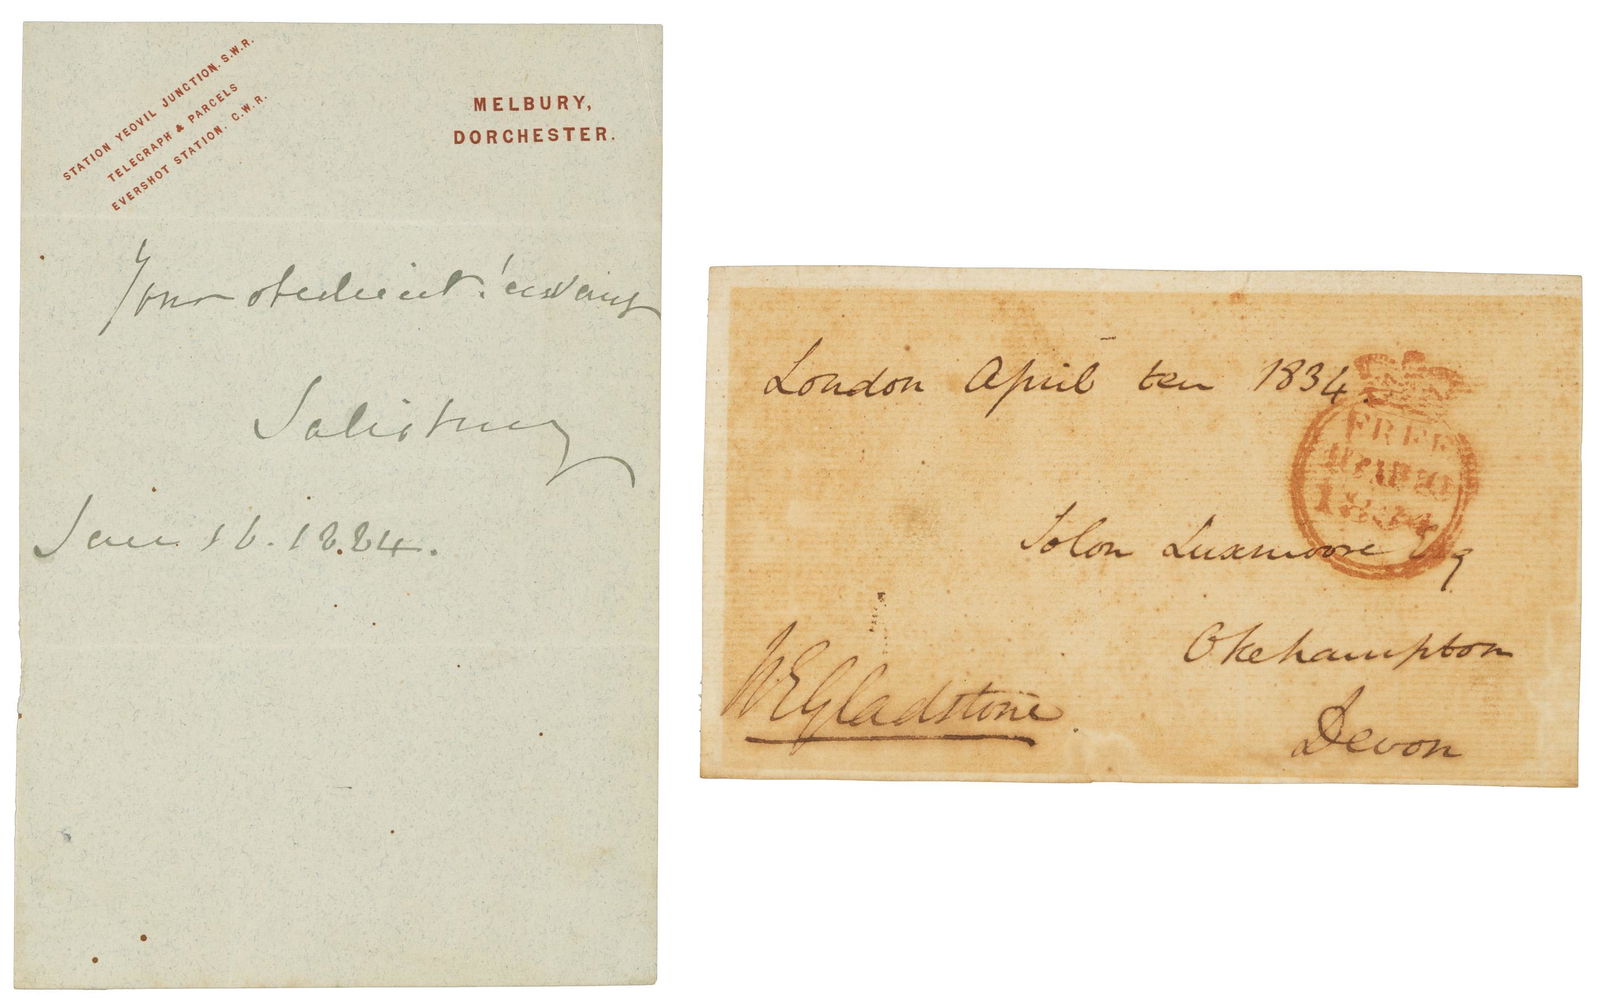 STATION YEOVIL JUNCTION. S.W.R.
TELEGRAPH & PARCELS
EVERSHOT STATION. C.W.R.
MELBURY,
DORCHESTER.
Your obedient servant
Salisbury
Jan 16. 1884.
London April ten 1834.
FREE
1834
Solon Luxmoore Esq
Okehampton
Devon
WEGladstone